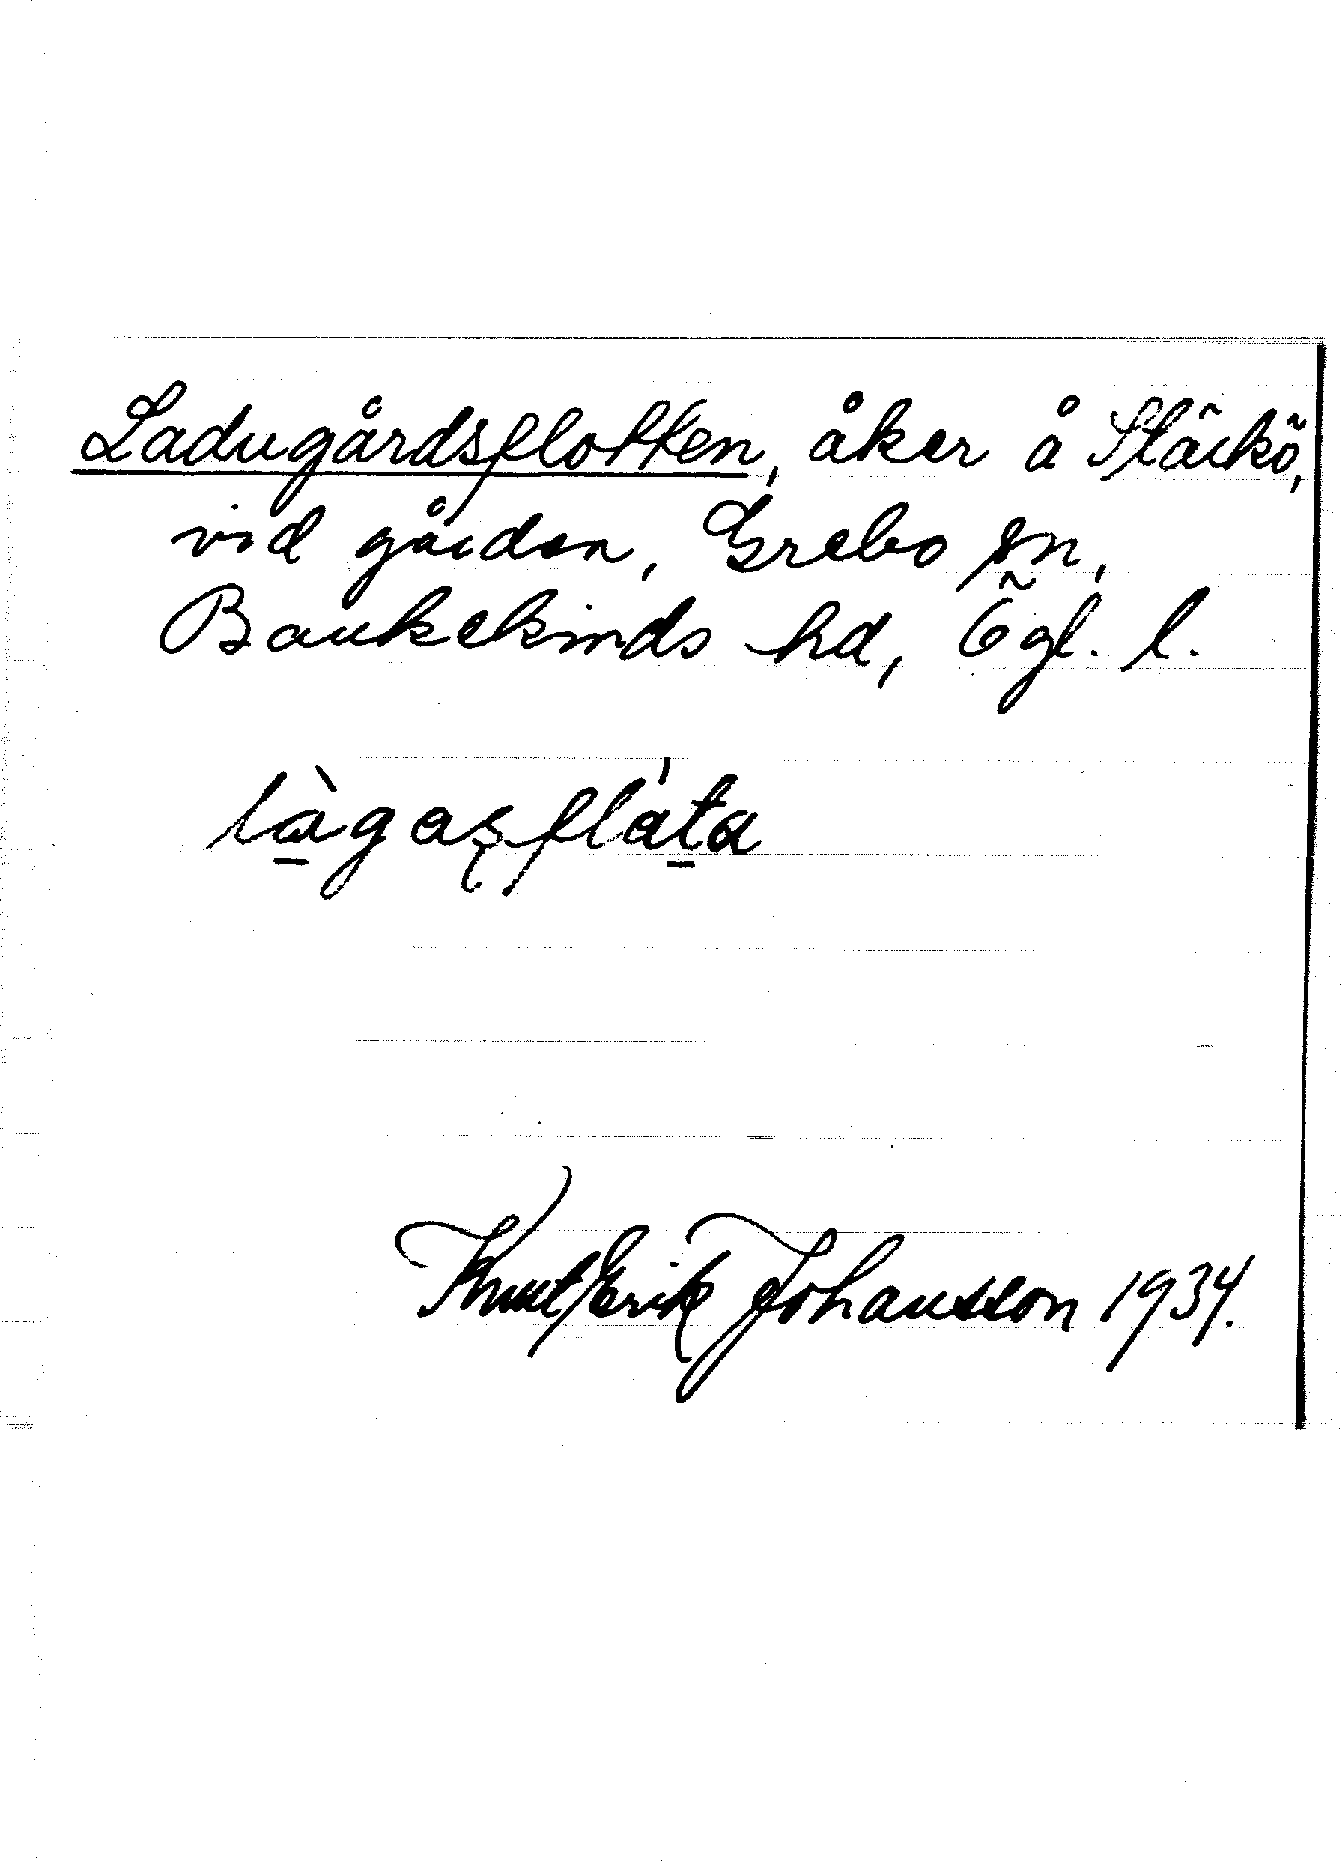 Ladugårdsflotten, åker å Släckö,
vid gården, Grebo sn,
Bankekinds hd, Ögl. l.
làgasflata
Knut Erik Johansson 1934.